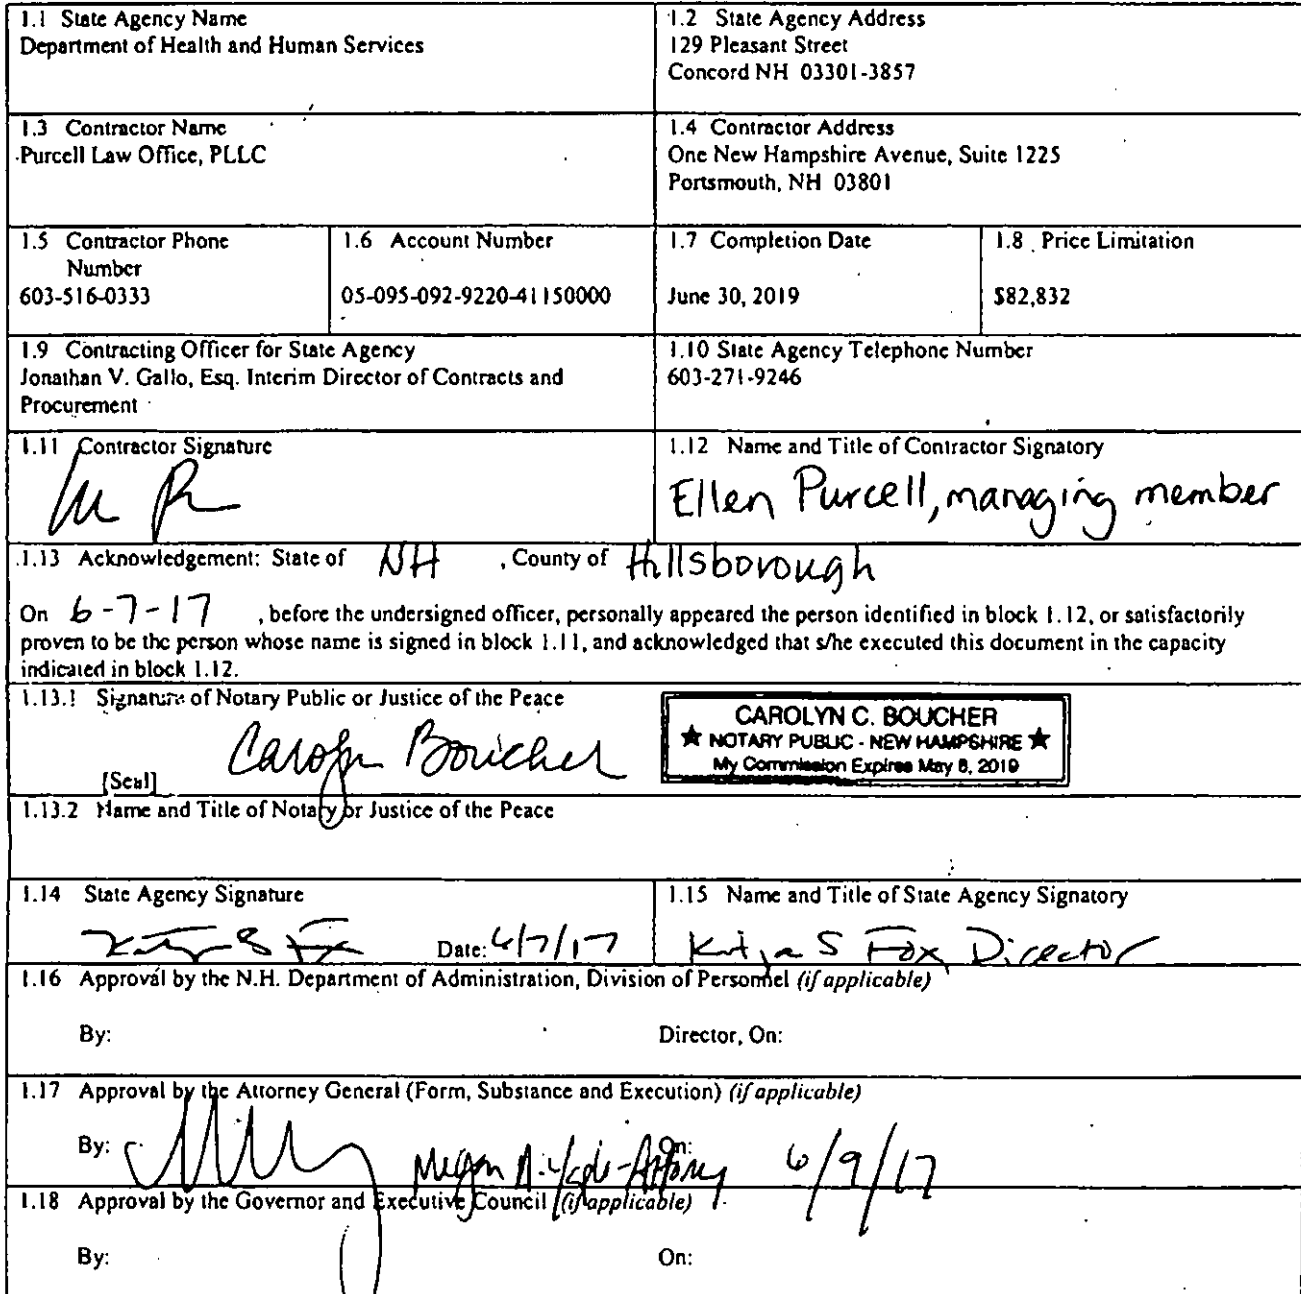 1.1 State Agency Name
Department of Health and Human Services
1.2 State Agency Address
129 Pleasant Street
Concord NH 03301-3857
1.3 Contractor Name
Purcell Law Office, PLLC
1.4 Contractor Address
One New Hampshire Avenue, Suite 1225
Portsmouth, NH 03801
1.5 Contractor Phone
Number
603-516-0333
1.6 Account Number
05-095-092-9220-41150000
1.7 Completion Date
June 30, 2019
1.8 Price Limitation
$82,832
1.9 Contracting Officer for State Agency
Jonathan V. Gallo, Esq. Interim Director of Contracts and
Procurement
1.10 State Agency Telephone Number
603-271-9246
1.11 Contractor Signature
1.12 Name and Title of Contractor Signatory
Ellen Purcell, managing member
1.13 Acknowledgement: State of NH , County of Hillsborough
On 6-7-17 , before the undersigned officer, personally appeared the person identified in block 1.12, or satisfactorily
proven to be the person whose name is signed in block 1.11, and acknowledged that s/he executed this document in the capacity
indicated in block 1.12.
1.13.1 Signature of Notary Public or Justice of the Peace
Carolyn Boucher
[Seal]
CAROLYN C. BOUCHER
★ NOTARY PUBLIC - NEW HAMPSHIRE ★
My Commission Expires May 8, 2019
1.13.2 Name and Title of Notary or Justice of the Peace
1.14 State Agency Signature
Date: 6/7/17
1.15 Name and Title of State Agency Signatory
Katja S Fox Director
1.16 Approval by the N.H. Department of Administration, Division of Personnel (if applicable)
By:
Director, On:
1.17 Approval by the Attorney General (Form, Substance and Execution) (if applicable)
By:
Megan A. - Attorney
On: 6/9/17
1.18 Approval by the Governor and Executive Council (if applicable)
By:
On: